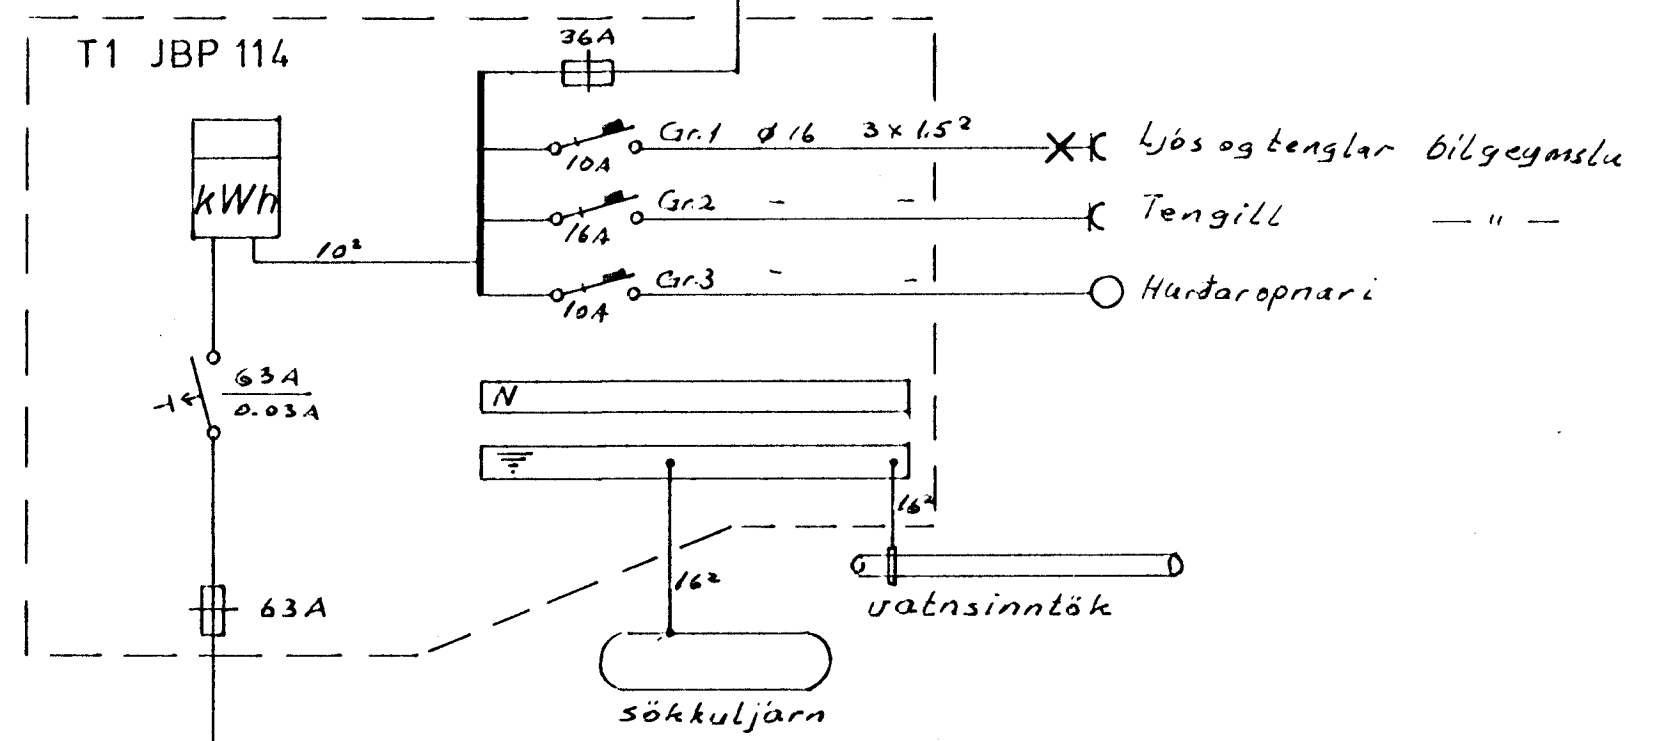 T1 JBP 114
36A
Gr.1 ø 16 3 x 1.5²
10A
Ljós og tenglar bílgeymslu
kWh
Gr.2 - -
16A
Tengill — " —
10²
Gr.3 - -
10A
Hurðaropnari
63A
0.03A
N
16²
16²
63A
vatnsinntök
sökkuljárn